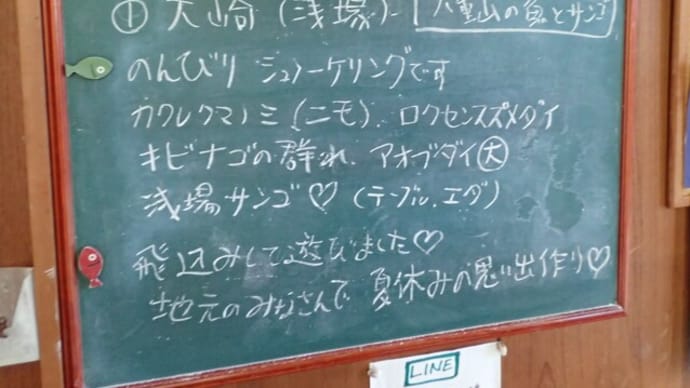 ① 大崎 (浅場) 八重山の魚とサンゴ
のんびり シュノーケリングです
カクレクマノミ (ニモ). ロクセンスズメダイ
キビナゴの群れ. アオブダイ大
浅場サンゴ♡ (テーブル.エダ)
飛込みして遊びました♡
地元のみなさんで 夏休みの思い出作り♡
LINE